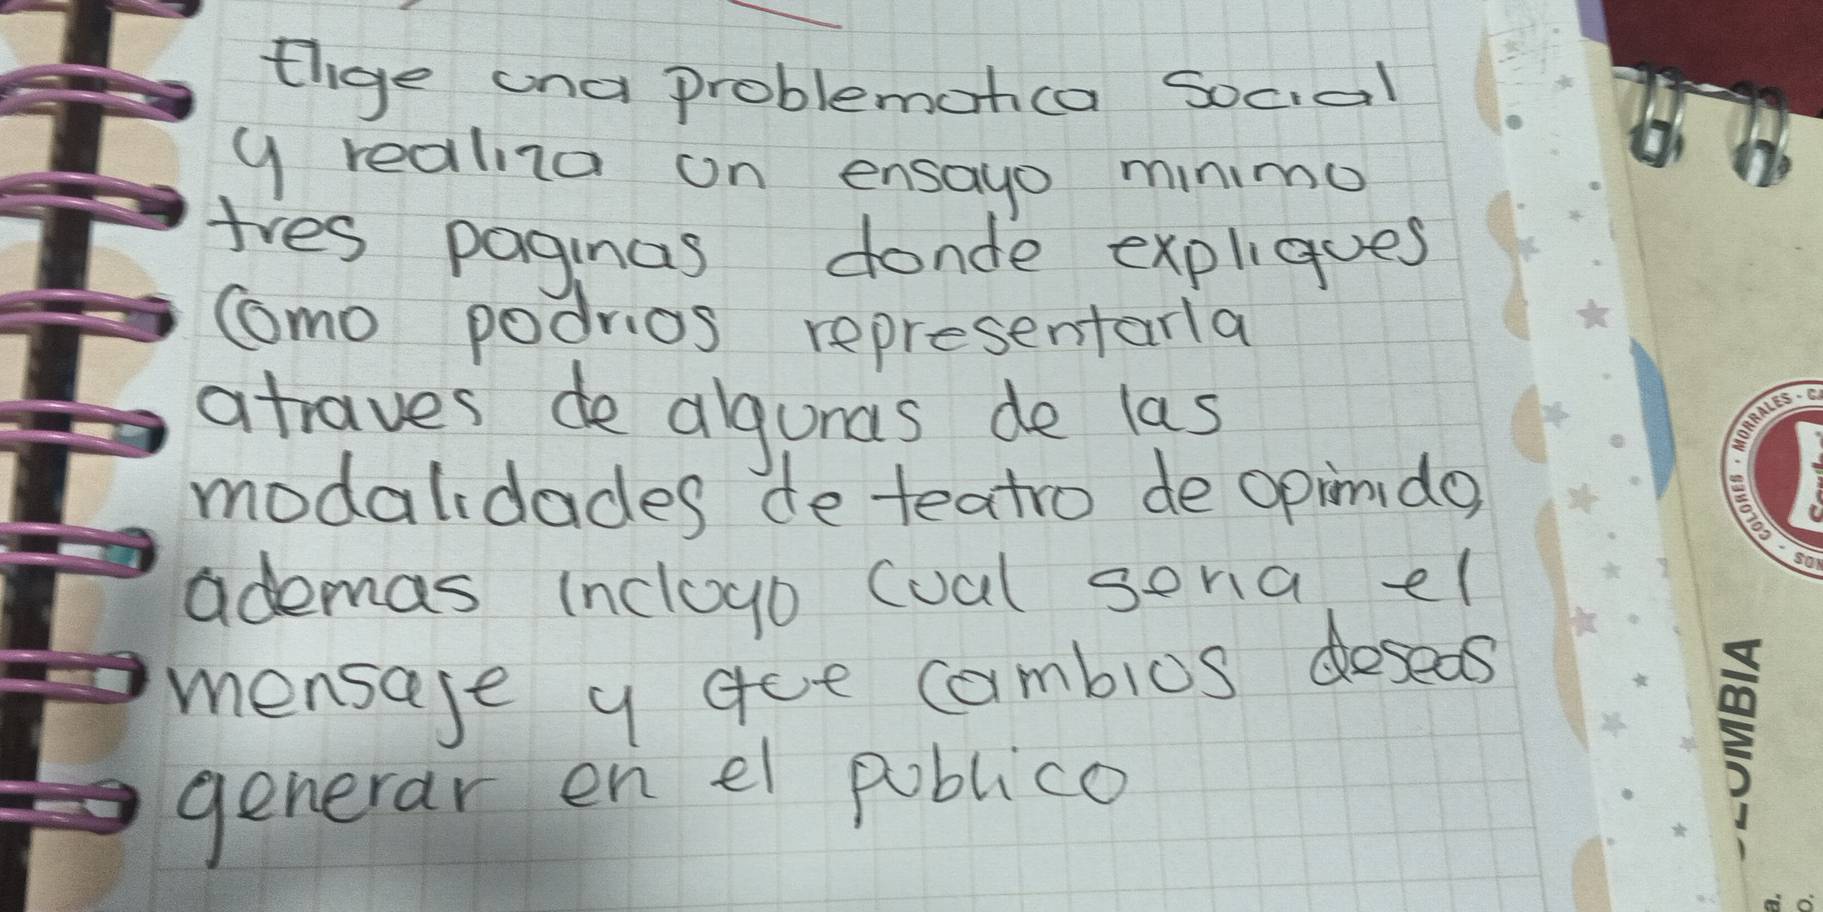 Elige una problematica Social
y realiza un ensayo minimo
tres paginas donde expliques
Como podrias representarla
atraves de algunas de las
modalidades de teatro de oprimido,
ademas incluyo cual seria el
mensaje y que cambios deseas
generar en el publico
COLORES · MORRALES · CA
SON
LOMBIA
a.
o.